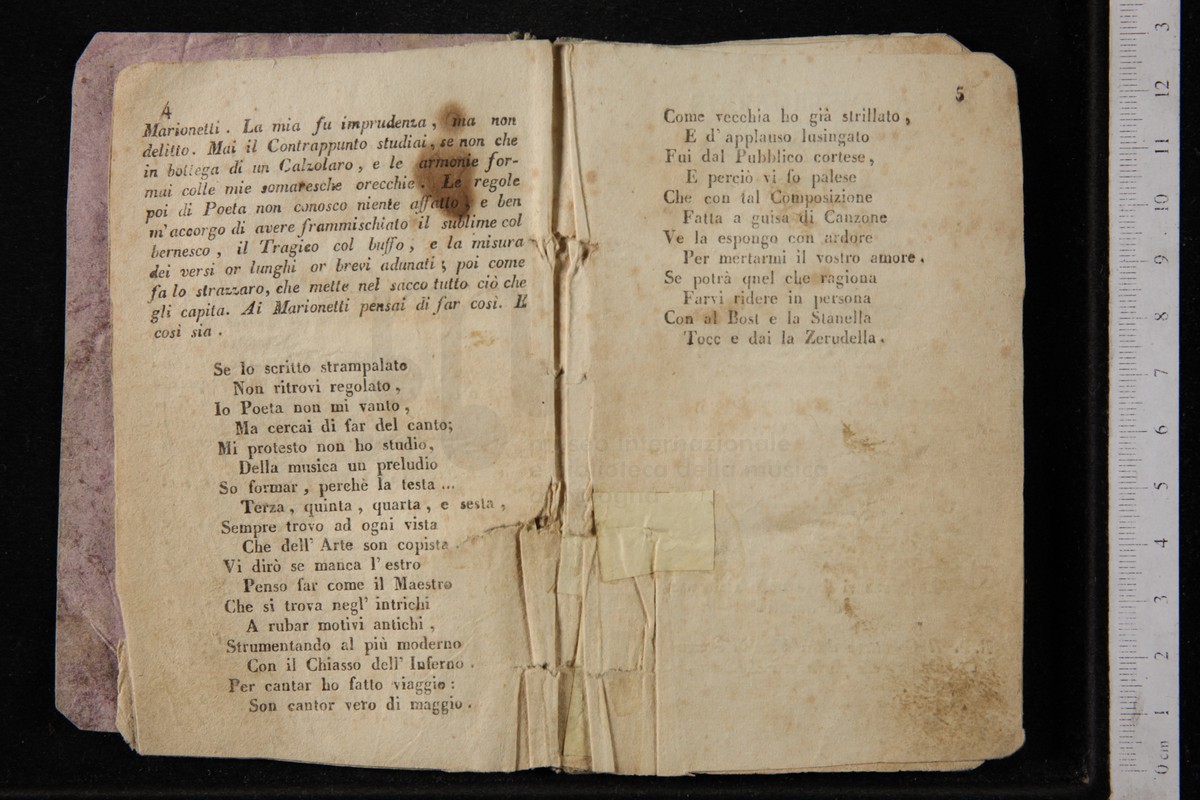 4
Marionetti. La mia fu imprudenza, ma non
delitto. Mai il Contrappunto studiai, se non che
in bottega di un Calzolaro, e le armonie for-
mai colle mie somaresche orecchie. Le regole
poi di Poeta non conosco niente affatto, e ben
m'accorgo di avere frammischiato il sublime col
bernesco, il Tragico col buffo, e la misura
dei versi or lunghi or brevi adunati; poi come
fa lo strazzaro, che mette nel sacco tutto ciò che
gli capita. Ai Marionetti pensai di far così. E
così sia.
Se lo scritto strampalato
Non ritrovi regolato,
Io Poeta non mi vanto,
Ma cercai di far del canto;
Mi protesto non ho studio,
Della musica un preludio
So formar, perchè la testa ...
Terza, quinta, quarta, e sesta,
Sempre trovo ad ogni vista
Che dell' Arte son copista.
Vi dirò se manca l' estro
Penso far come il Maestro
Che si trova negl' intrichi
A rubar motivi antichi,
Strumentando al più moderno
Con il Chiasso dell' Inferno.
Per cantar ho fatto viaggio:
Son cantor vero di maggio.
5
Come vecchia ho già strillato,
E d' applauso lusingato
Fui dal Pubblico cortese,
E perciò vi fo palese
Che con tal Composizione
Fatta a guisa di Canzone
Ve la espongo con ardore
Per mertarmi il vostro amore.
Se potrà quel che ragiona
Farvi ridere in persona
Con al Bost e la Stanella
Tocc e dai la Zerudella.
museo internazionale
e biblioteca della musica
0 cm 1 2 3 4 5 6 7 8 9 10 11 12 3